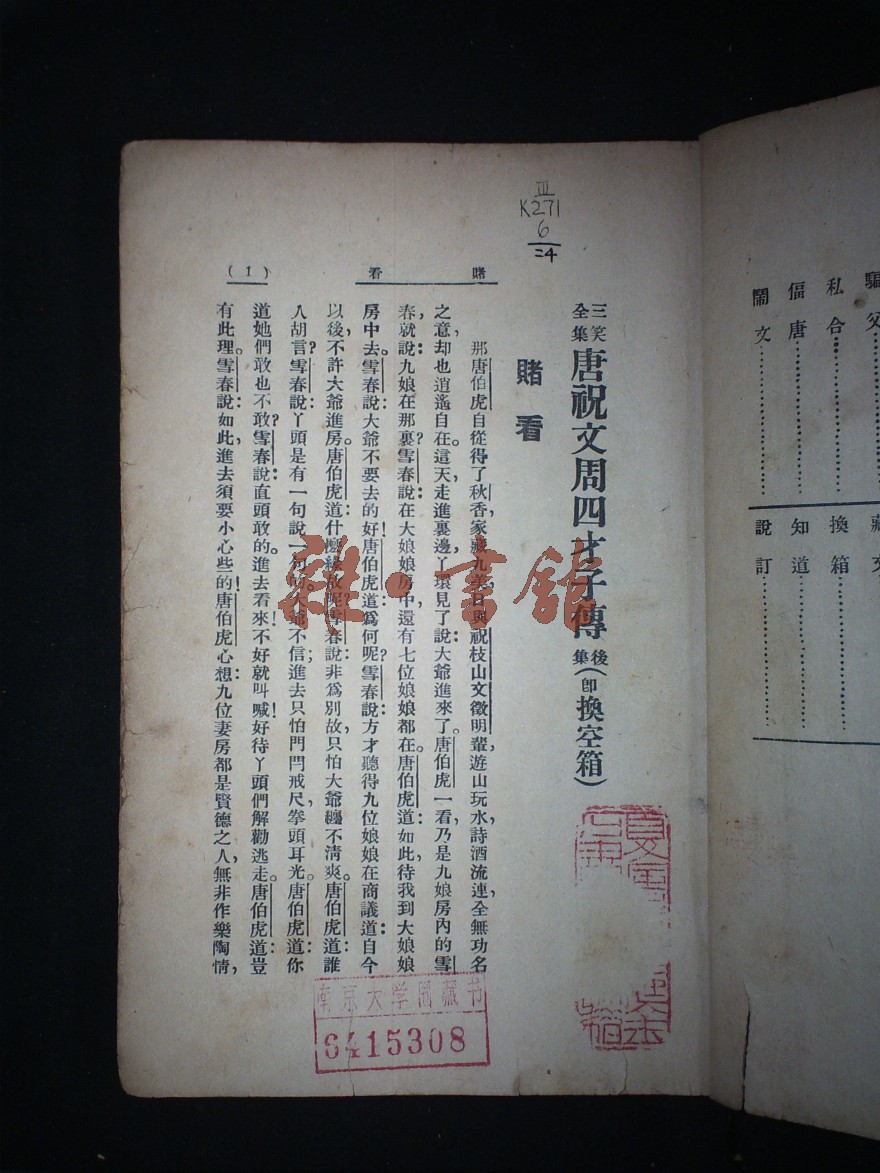 III
K271
6
24
三笑全集 唐祝文周四才子傳 後集(卽換空箱)
賭看
賭 看 (1)
那唐伯虎自從得了秋香,家藏九美,日與祝枝山文徵明輩,遊山玩水,詩酒流連,全無功名
之意,却也逍遙自在。這天走進裏邊,丫環見了,說大爺進來了。唐伯虎一看,乃是九娘房內的雪
春,就說:九娘在那裏?雪春說:在大娘娘房中,還有七位娘娘都在。唐伯虎道:如此待我到大娘娘
房中去。雪春說:大爺不要去的好!唐伯虎道:爲何呢?雪春說:方才聽得九位娘娘在商議道:自今
以後,不許大爺進房。唐伯虎道:什麼緣故呢?雪春說:非爲別故,只怕大爺纏不清爽。唐伯虎道:誰
人胡言?雪春說:丫頭是有一句說一句的。大爺不信;進去只怕門閂戒尺,拳頭耳光。唐伯虎道:你
道她們敢也不敢?雪春說:直頭敢的。進去看來!不好就叫喊!好待丫頭們解勸逃走。唐伯虎道:豈
有此理。雪春說:如此,進去須要小心些的!唐伯虎心想:九位妻房都是賢德之人,無非作樂陶情,
南京大学图藏书
6415308
雜·書館
騙父
私合
偪唐
鬧文
換箱
知道
說訂